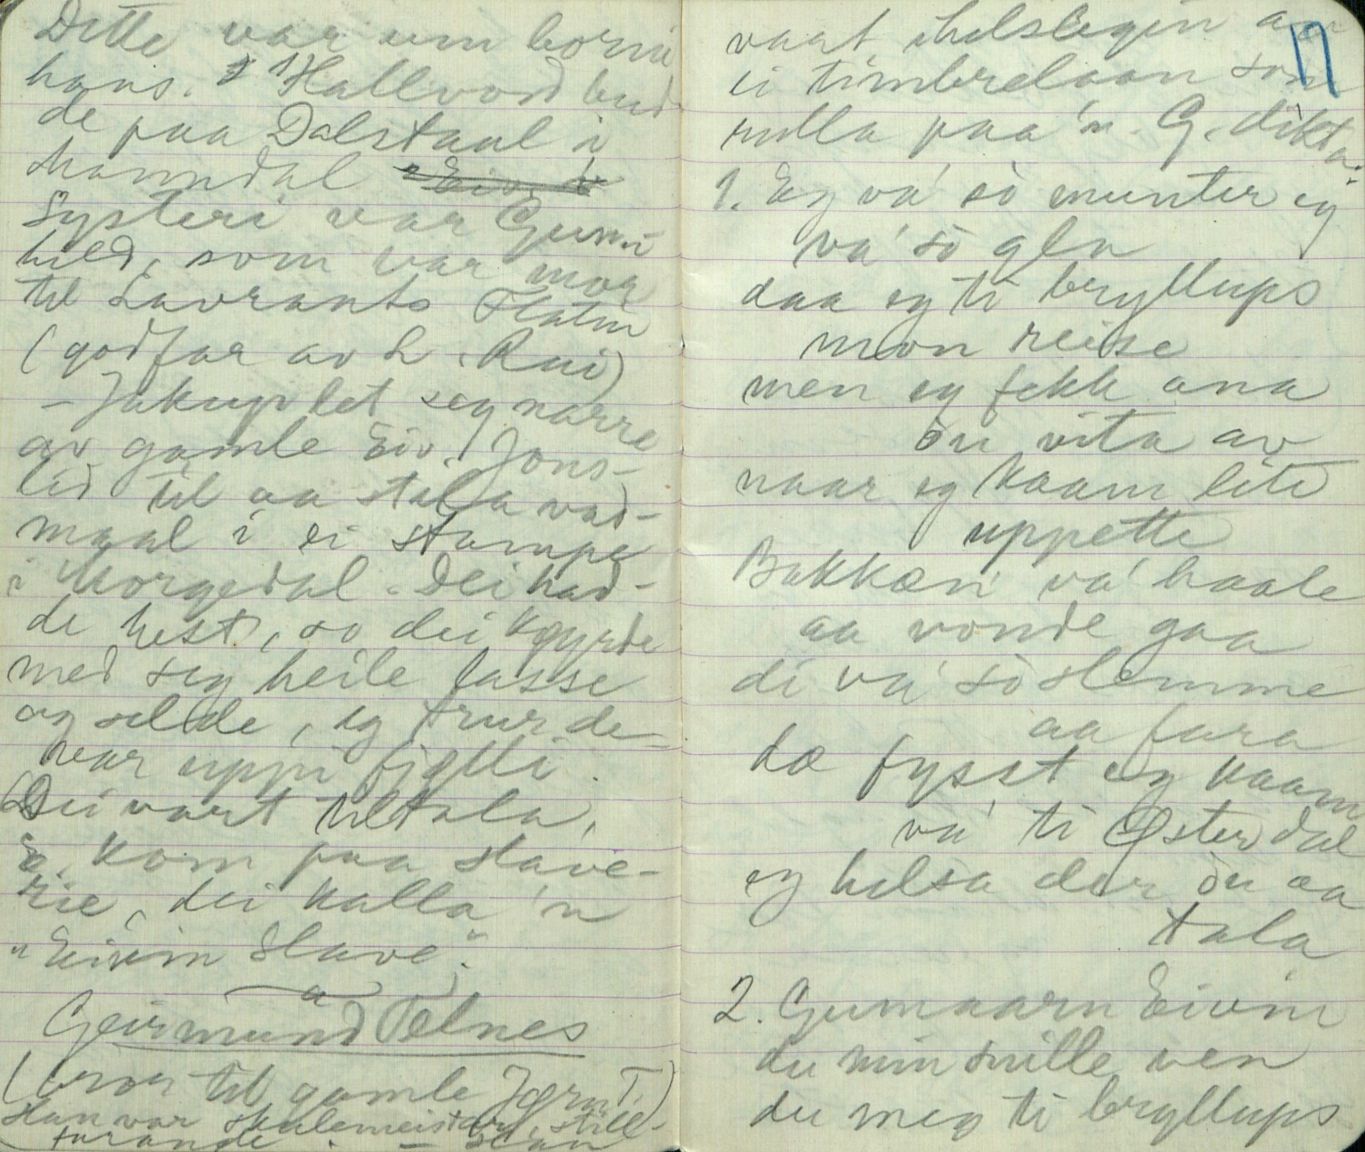 Dette var um borni
hans. Hallvord bud-
de paa Dalstaul i
Manndal
Systeri var Gunn-
hild, som var mor
til Lavrants Flatin
(godfar av L. Rui)
– Jakup let seg narre
av gamle Eiv. Jons-
lid til aa stela vad-
maal i ei stampe
i Morgedal. Dei had-
de hest, so dei køyrde
med seg heile lasse
og selde, eg trur de
var uppi fjølli.
Dei vart tiltala,
E. kom paa slave-
rie, dei kalla 'n
"Eivin Slave".
Geirmund Telnes
(bror til gamle Jørn T.)
Han var skulemeister, still-
farande. – Han
17
vart ihelslegin av
ei timbrelaan som
rulla paa 'n. G. dikta:
1. Eg va' so munter eg
va' so gla
daa eg ti bryllups
mon reise
men eg fekk ana
òn vita av
naar eg kaam lite
uppette
Bakkæn' va' haale
aa vonde gaa
di va' so slemme
aa fara
dæ fysst eg kaam
va' ti Østerdal
eg helsa der òn aa
tala
2. Gumaarn Eivin
du min snille ven
du meg ti bryllups